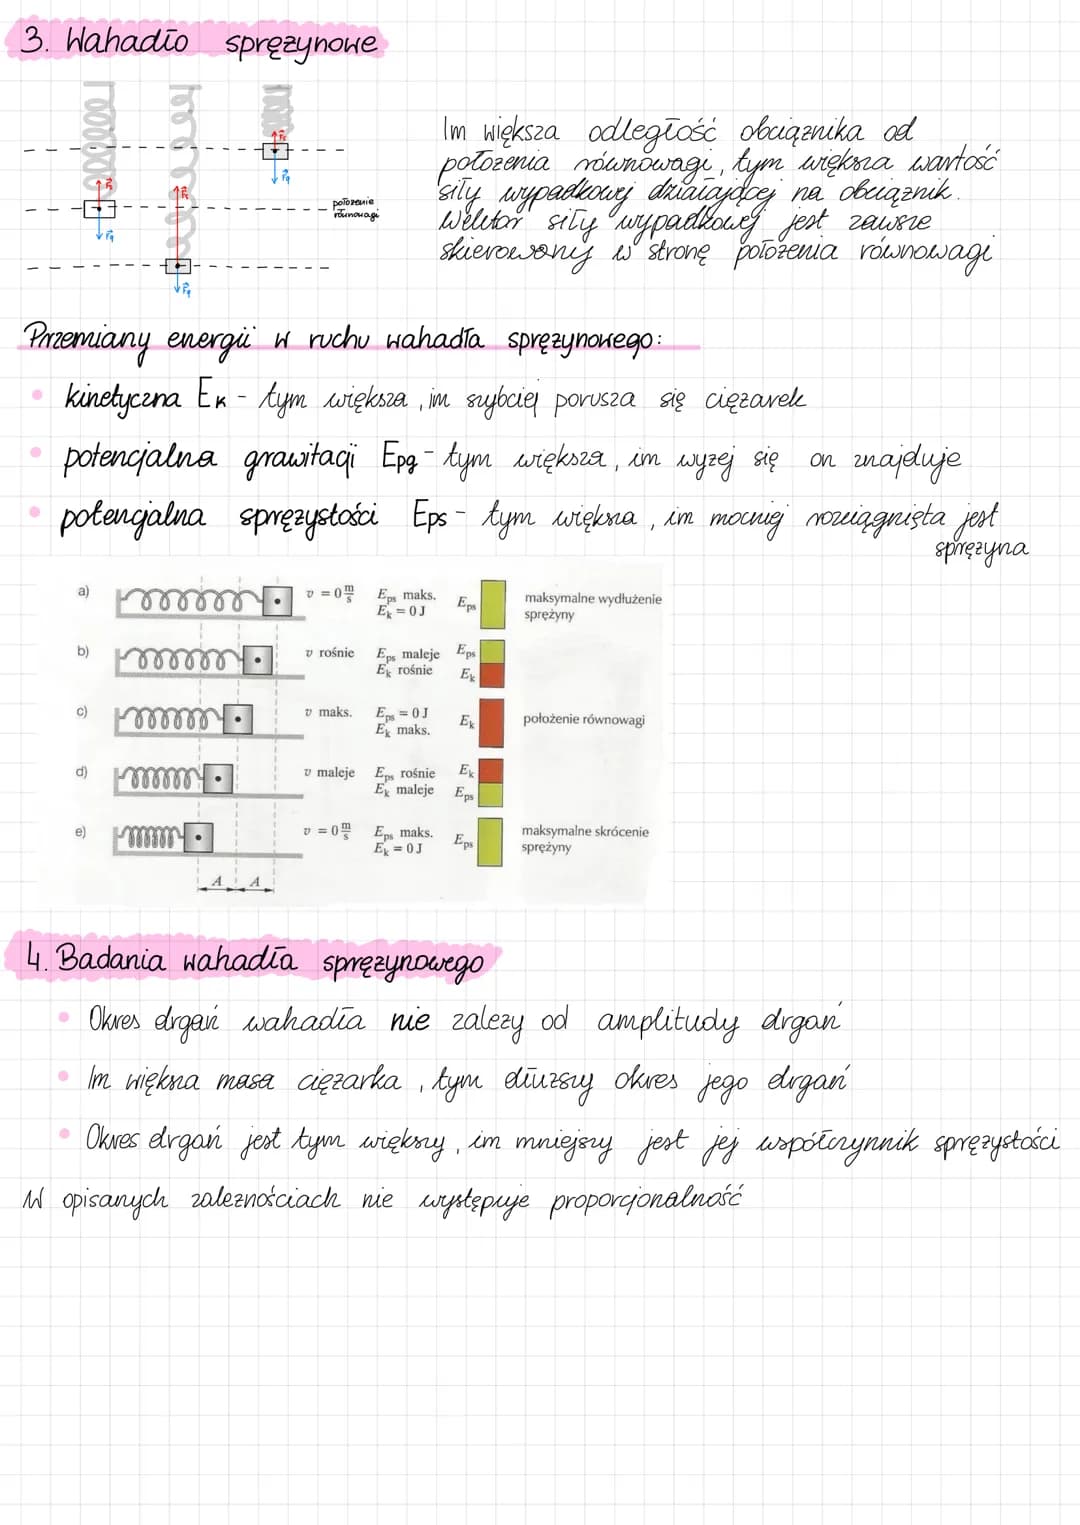 3. Wahadło sprężynowe
położenie
równowagi
Im większa odległość obciążnika od
położenia równowagi, tym większa wartość
siły wypadkowej działającej na obciążnik.
Wektor siły wypadkowej jest zawsze
skierowany w stronę położenia równowagi
Przemiany energii w ruchu wahadła sprężynowego:
• kinetyczna Ek - tym większa, im szybciej porusza się ciężarek
• potencjalna grawitacji Epg - tym większa, im wyżej się on znajduje
• potencjalna sprężystości Eps - tym większa, im mocniej rozciągnięta jest
sprężyna
a) v = 0 m/s Eps maks. Eps maksymalne wydłużenie
Ek = 0 J sprężyny
b) v rośnie Eps maleje Eps
Ek rośnie Ek
c) v maks. Eps = 0 J Ek położenie równowagi
Ek maks.
d) v maleje Eps rośnie Ek
Ek maleje Eps
e) v = 0 m/s Eps maks. Eps maksymalne skrócenie
Ek = 0 J sprężyny
A A
4. Badania wahadła sprężynowego
• Okres drgań wahadła nie zależy od amplitudy drgań
• Im większa masa ciężarka, tym dłuższy okres jego drgań
• Okres drgań jest tym większy, im mniejszy jest jej współczynnik sprężystości
W opisanych zależnościach nie występuje proporcjonalność